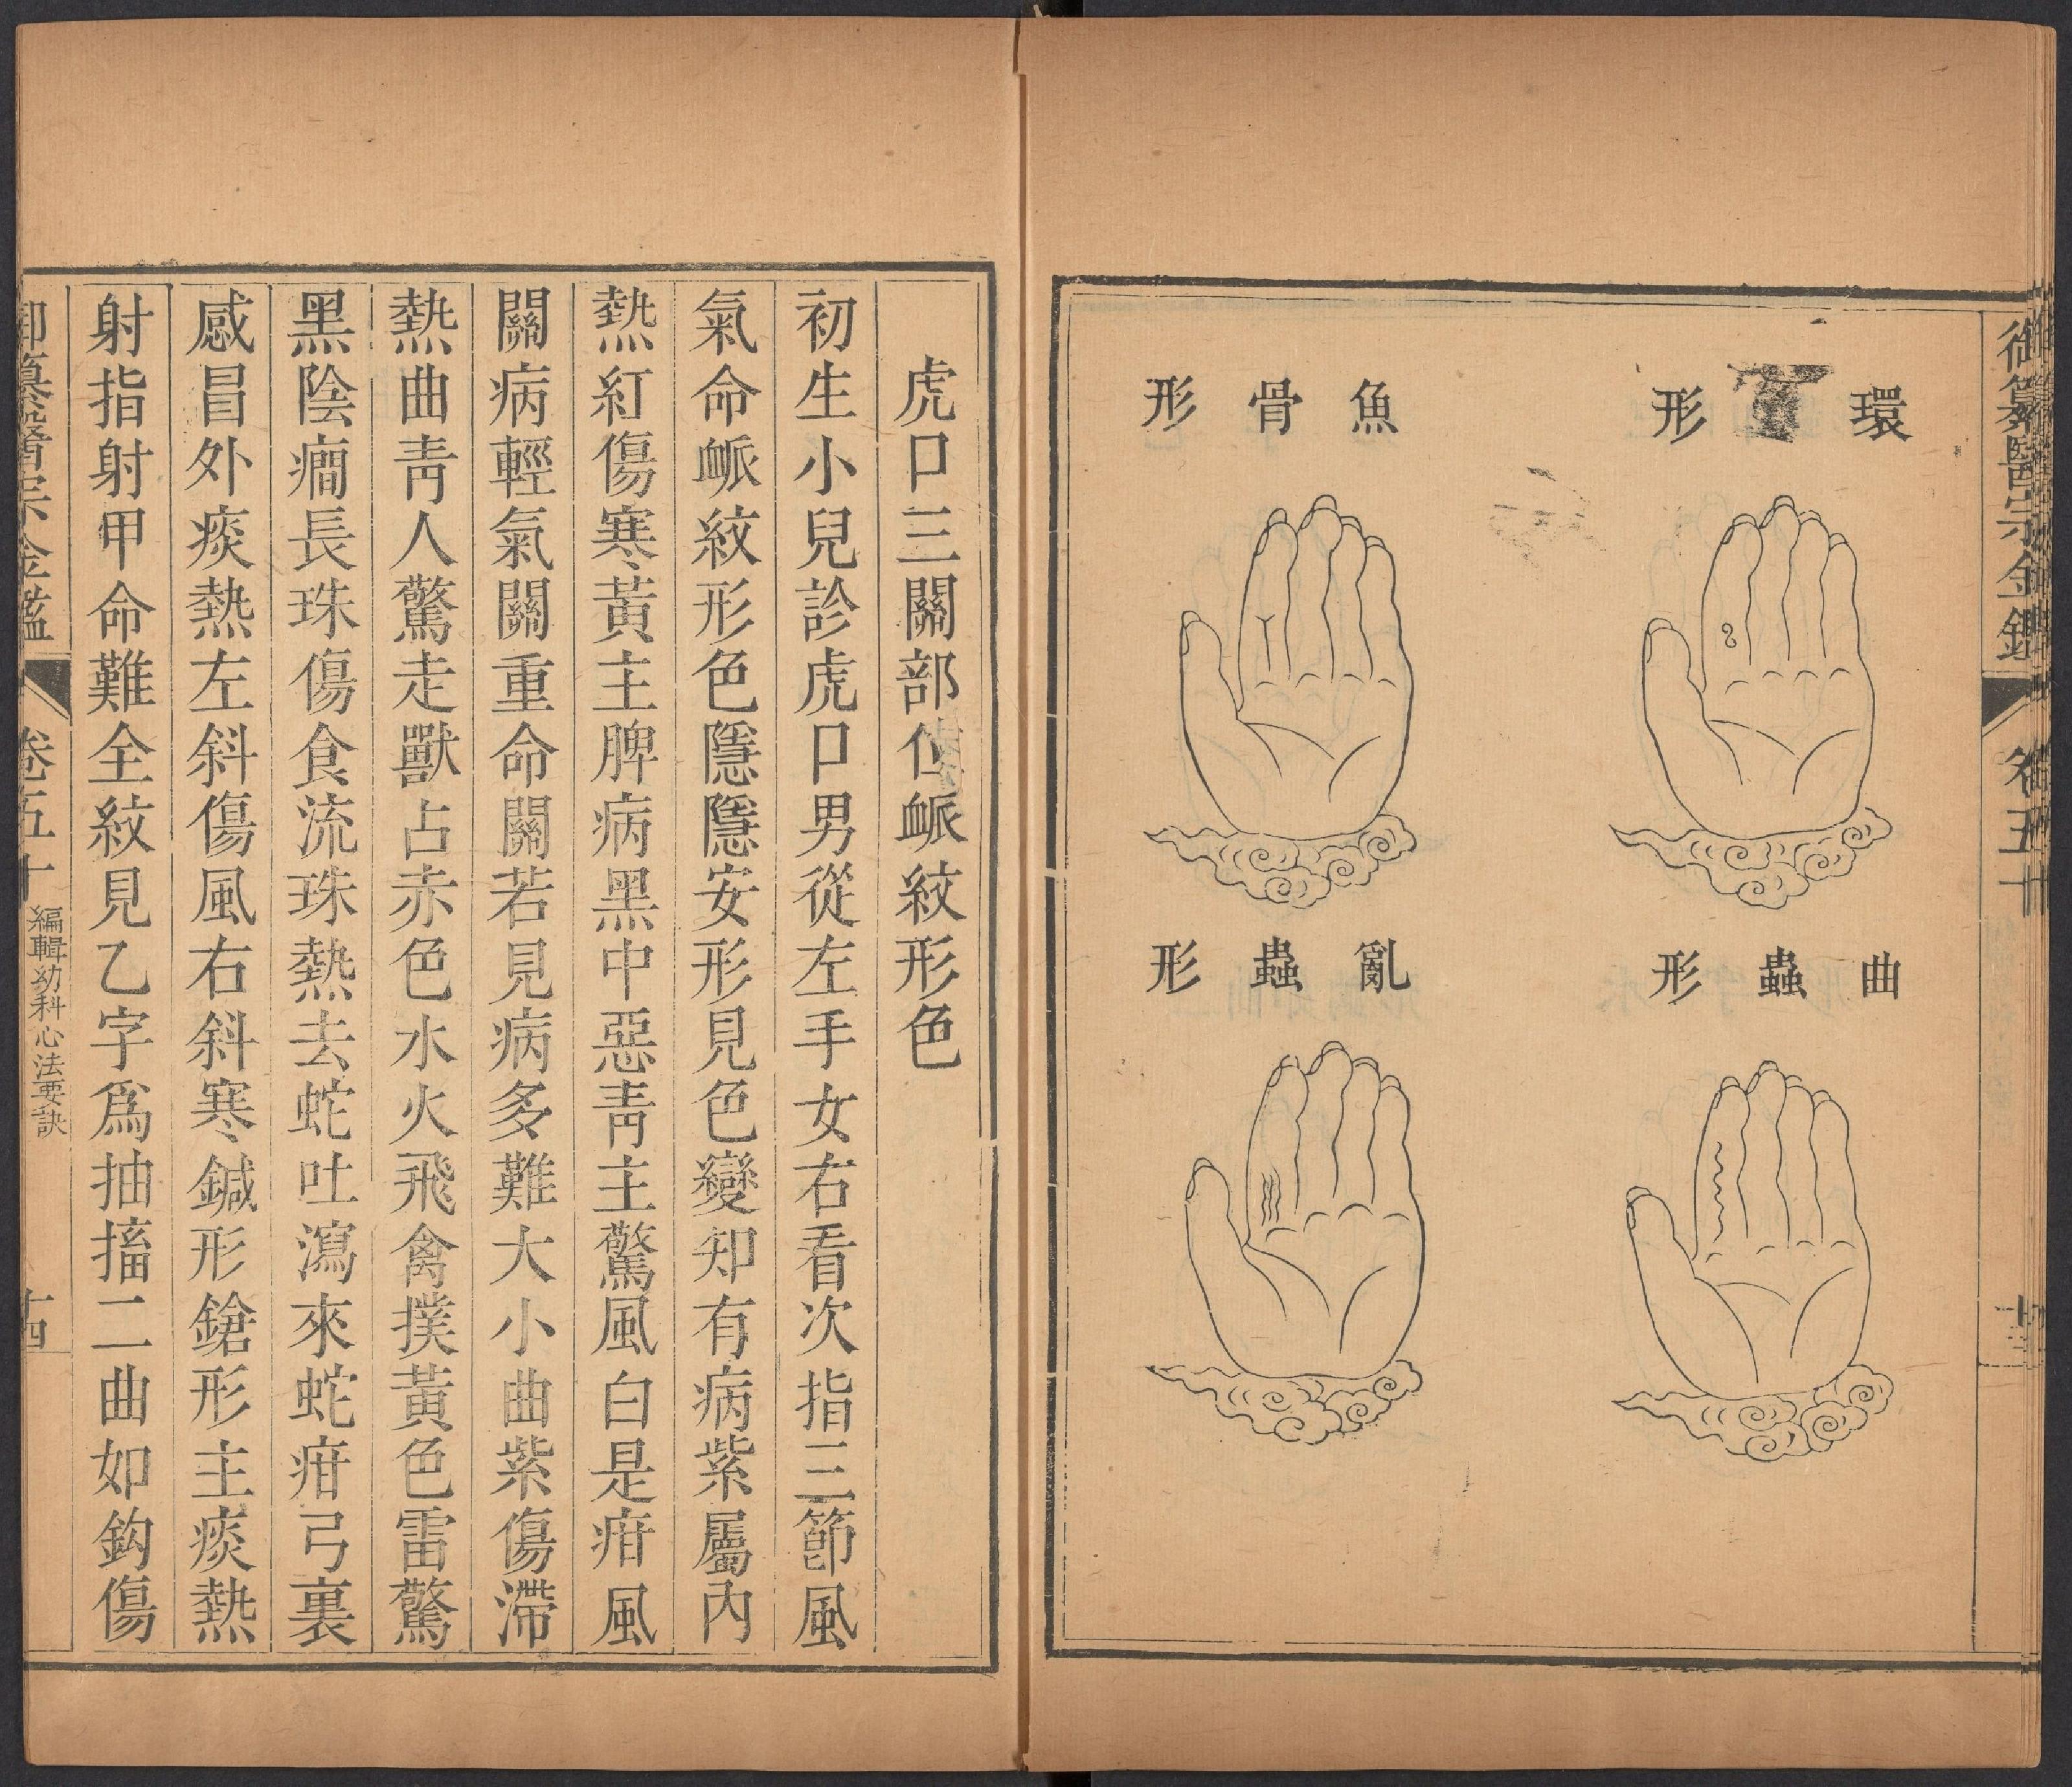 御纂醫宗金鑑 卷五十 十三
環 形
魚骨形
曲蟲形
亂蟲形
虎口三關部位衇紋形色
初生小兒診虎口男從左手女右看次指三節風
氣命衇紋形色隱隱安形見色變知有病紫屬內
熱紅傷寒黃主脾病黑中惡靑主驚風白是疳風
關病輕氣關重命關若見病多難大小曲紫傷滯
熱曲靑人驚走獸占赤色水火飛禽撲黃色雷驚
黑陰癎長珠傷食流珠熱去蛇吐瀉來蛇疳弓裏
感冒外痰熱左斜傷風右斜寒鍼形鎗形主痰熱
射指射甲命難全紋見乙字爲抽搐二曲如鈎傷
御纂醫宗金鑑 卷五十 編輯幼科心法要訣 十四